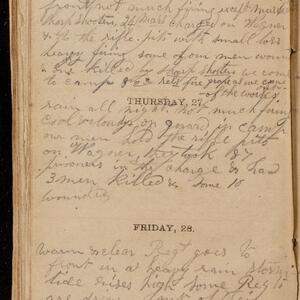 front not much firing except musk
sharp shooters, 24 Mass charged on Wagner
& the rifle pits with small loss
heavy firing some of our men woun
& killed by sharp shooters we come
to camp
of the works
THURSDAY, 27.
rain all night not much firing
cool & cloudy on guard in camp
our men hold the rifle pitts
on Wagner, they took 87
prisoners in the charge & had
3 men killed & some 10
wounded
FRIDAY, 28.
warm & clear Regt goes to
front in a heavy rain storm
tide rises high some Reg to